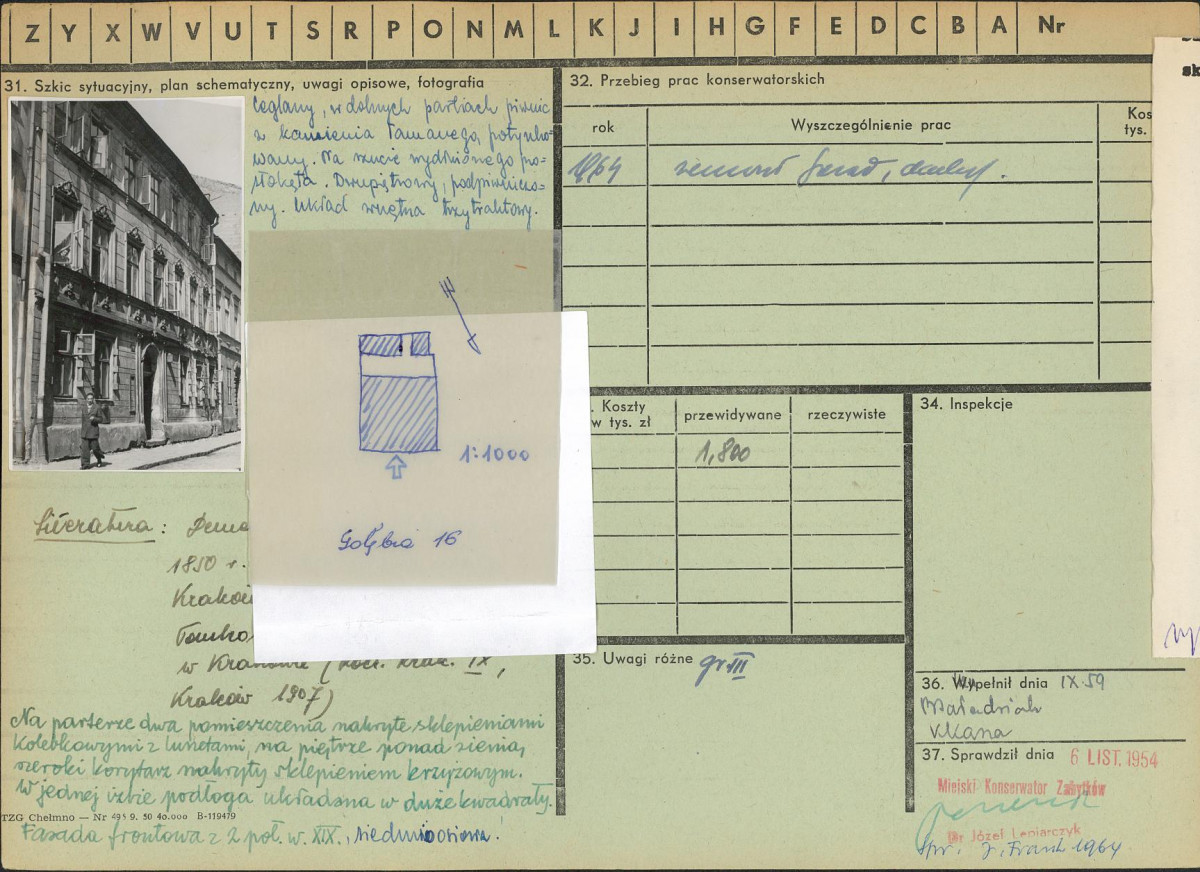 Z Y X W V U T S R P O N M L K J I H G F E D C B A Nr
31. Szkic sytuacyjny, plan schematyczny, uwagi opisowe, fotografia
Ceglany, w dolnych partiach piwnic
z kamienia łamanego, potynko-
wany. Na rzucie wydłużonego pro-
stokąta. Dwupiętrowy, podpiwniczo-
ny. Układ wnętrza trzytraktowy.
1:1000
Gołębia 16
Literatura:
1850 r.
Kraków
w Krakowie (
IX,
Kraków 1907)
Na parterze dwa pomieszczenia nakryte sklepieniami
kolebkowymi z lunetami, na piętrze ponad sienią,
szeroki korytarz nakryty sklepieniem krzyżowym.
W jednej izbie podłoga układana w duże kwadraty.
TZG Chełmno — Nr 9. 50 40.000 B-119479
Fasada frontowa z 2 poł. w. XIX., siedmioosiowa.
32. Przebieg prac konserwatorskich
rok
Wyszczególnienie prac
Kos
tys.
1964
remont
Koszty
w tys. zł
przewidywane
rzeczywiste
1,800
34. Inspekcje
35. Uwagi różne gr III
36. Wypełnił dnia IX.59
37. Sprawdził dnia 6 LIST. 1954
Miejski Konserwator Zabytków
Dr Józef Lepiarczyk
Spr. J. Frank 1964
sk